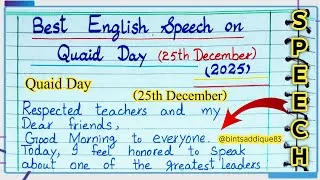 Best English Speech on
Quaid Day (25th December)
(2025)
Quaid Day
(25th December)
Respected teachers and my
Dear friends,
Good Morning to everyone.
@bintsaddique83
Today, I feel honored to speak
about one of the greatest leaders
SPEECH